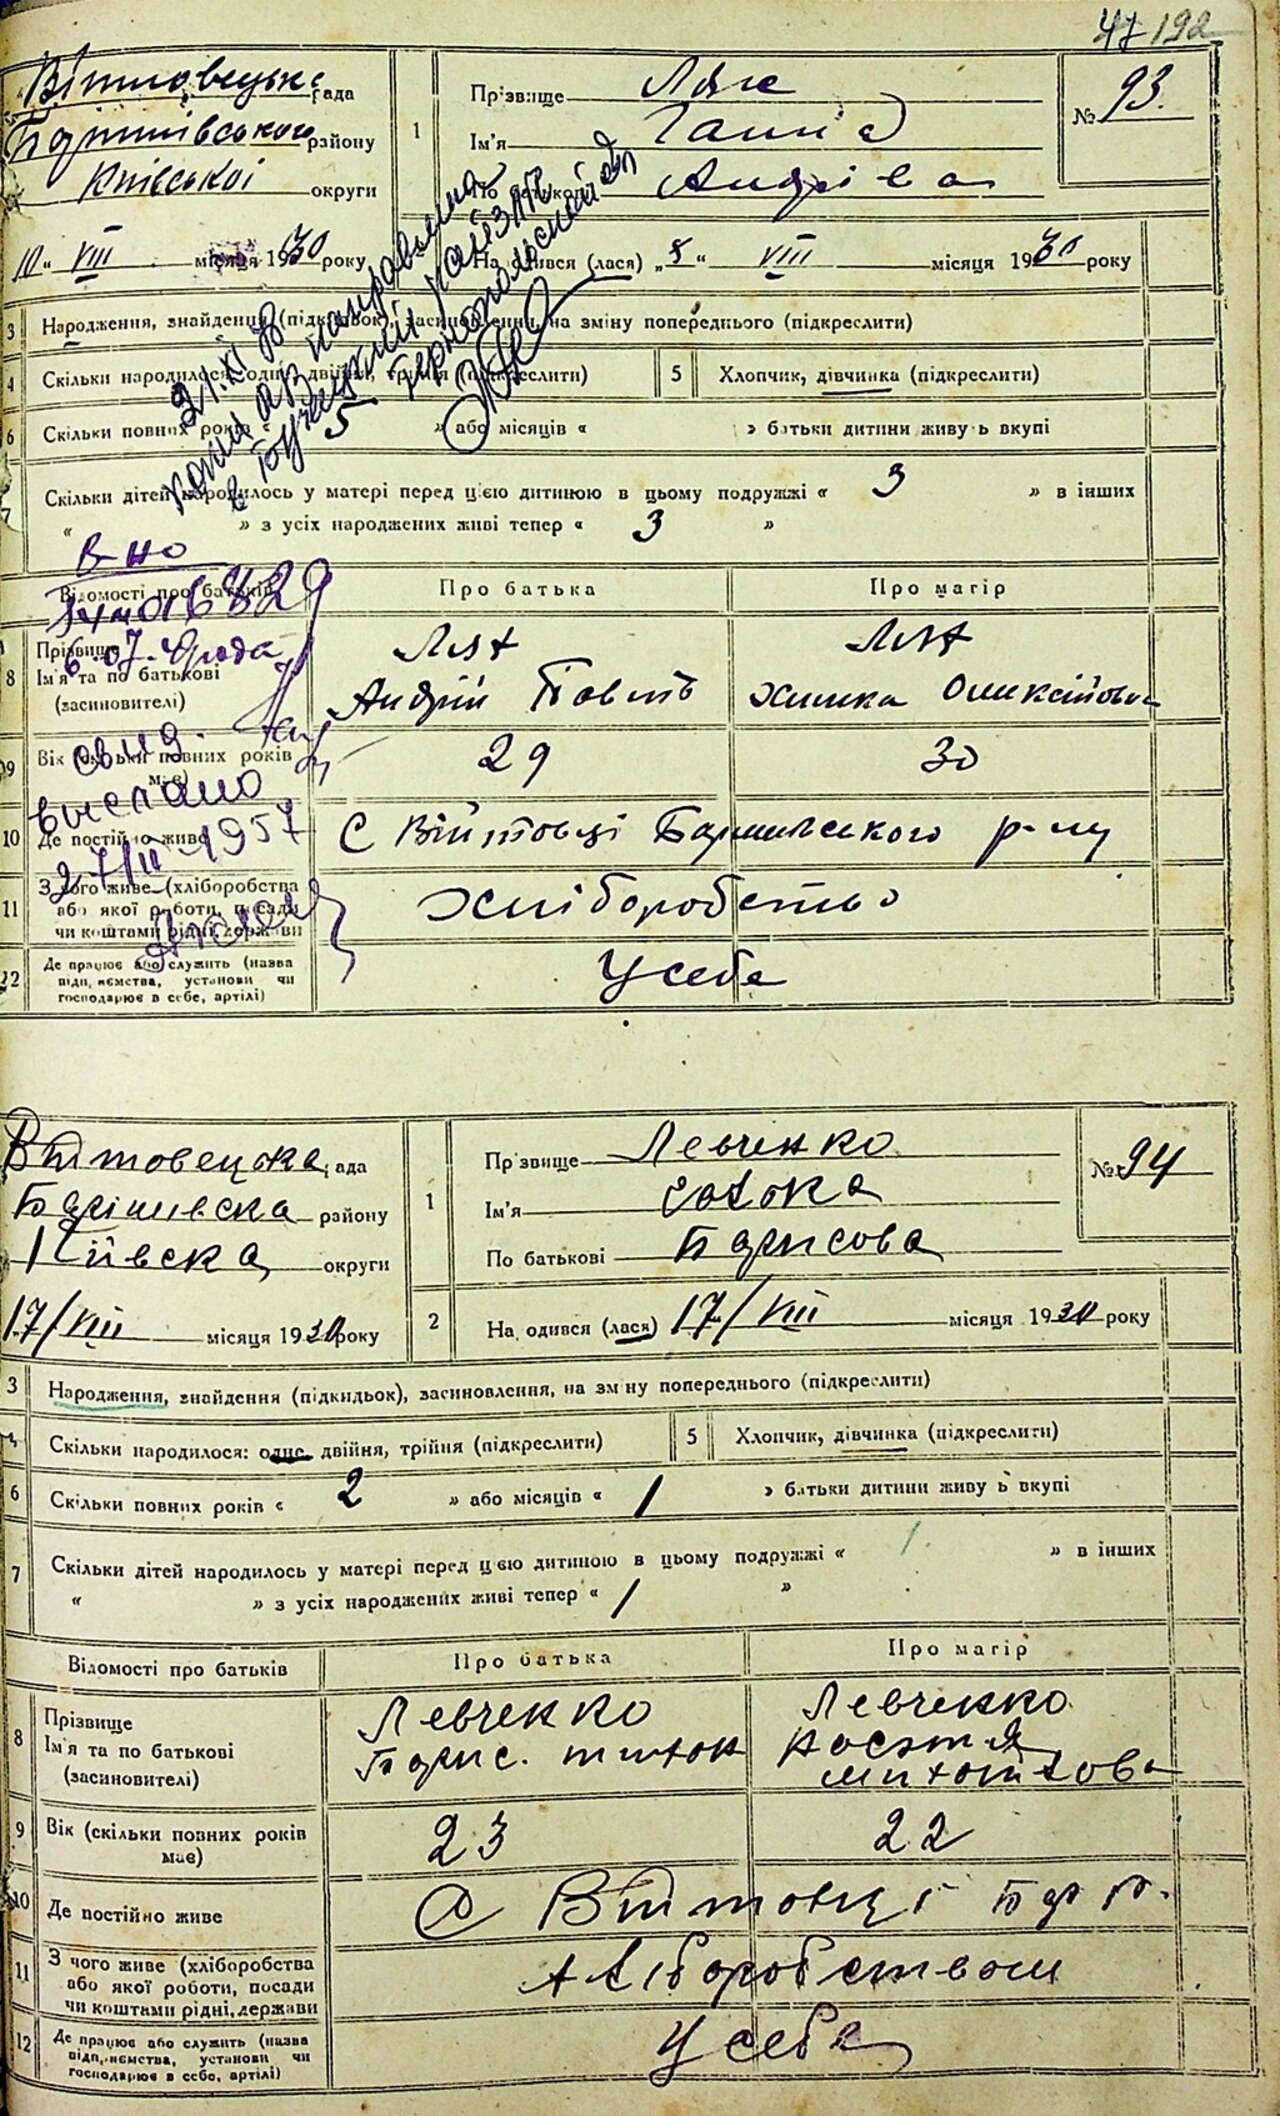 47 192
Війтовецька рада
Баришівського району
Київської округи
10 " VIII місяця 1930 року
1
Прізвище Лях
Ім'я Ганна
По батькові Андріева
№ 93.
На одився (лася) „8 “ VIII місяця 1930 року
3 Народження, знайдення (підкидьок), засиновлення, на зміну попереднього (підкреслити)
4 Скільки народилося: одне, двійня, трійня (підкреслити) 5 Хлопчик, дівчинка (підкреслити)
6 Скільки повних років « 5 » або місяців « » батьки дитини живу ь вкупі
7 Скільки дітей народилось у матері перед цією дитиною в цьому подружжі « 3 » в інших
“ » з усіх народжених живі тепер « 3 »
21.XI
направлена
в
016829
6.07.
выслано
27/II 1957
Відомості про батьків Про батька Про матір
8 Прізвище
Ім'я та по батькові
(засиновителі)
Лях
Андрій Павлів
Лях
Химка Олексійовна
9 Вік (скільки повних років має) 29 30
10 Де постійно живе С Війтовці Баришівського р-ну
11 З чого живе (хліборобства
або якої роботи, посади
чи коштами рідні, держави
Хліборобство
12 Де працює або служить (назва
підп, иємства, установи чи
господарює в себе, артілі)
У себе
Війтовецька рада
Барішивска району
Київска округи
17/VIII місяця 1930 року
1
Пр звище Левченко
Ім'я
По батькові Барисова
№ 94
2 На одився (лася) 17/VIII місяця 1930 року
3 Народження, знайдення (підкидьок), засиновлення, на зм ну попереднього (підкреслити)
Скільки народилося: одне, двійня, трійня (підкреслити) 5 Хлопчик, дівчинка (підкреслити)
6 Скільки повних років « 2 » або місяців « 1 » батьки дитини живу ь вкупі
7 Скільки дітей народилось у матері перед цією дитиною в цьому подружжі « 1 » в інших
“ » з усіх народжених живі тепер « 1 »
Відомості про батьків Про батька Про матір
8 Прізвище
Ім'я та по батькові
(засиновителі)
Левченко
Барис.
Левченко
9 Вік (скільки повних років
має)
23 22
10 Де постійно живе С Війтовці Бар р.
11 З чого живе (хліборобства
або якої роботи, посади
чи коштами рідні, держави
хліборобством
12 Де працює або служить (назва
підп, иємства, установи чи
господарює в себе, артілі)
У себе